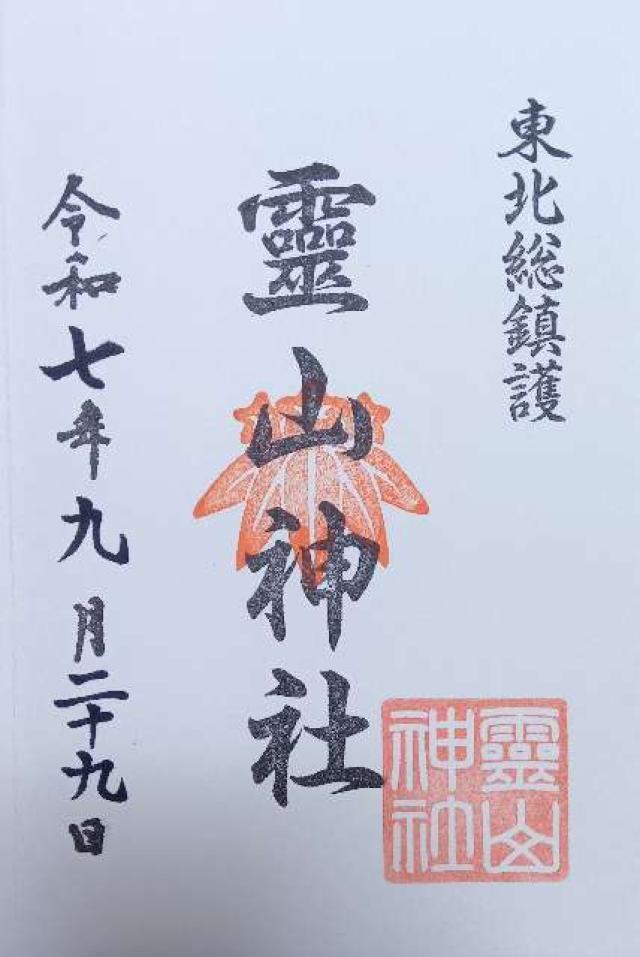 東北総鎮護
靈山神社
令和七年九月二十九日
靈山
神社